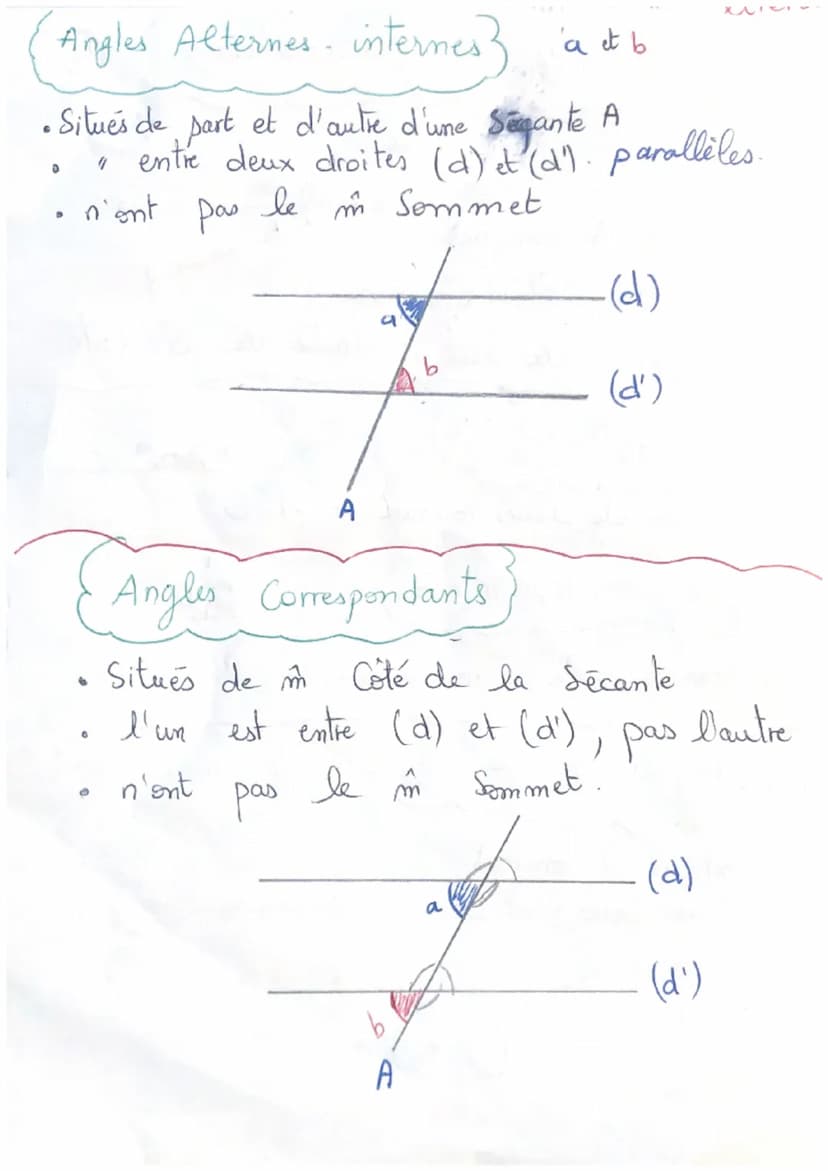 Angles Alternes-internes a et b
• Situés de part et d'autre d'une Sécante A
• " entre deux droites (d) et (d'). parallèles.
• n'ont pas le m̂ Sommet
(d)
a
b
(d')
A
Angles Correspondants
• Situés de m̂ Côté de la Sécante
• l'un est entre (d) et (d'), pas l'autre
• n'ont pas le m̂ Sommet.
(d)
a
(d')
b
A